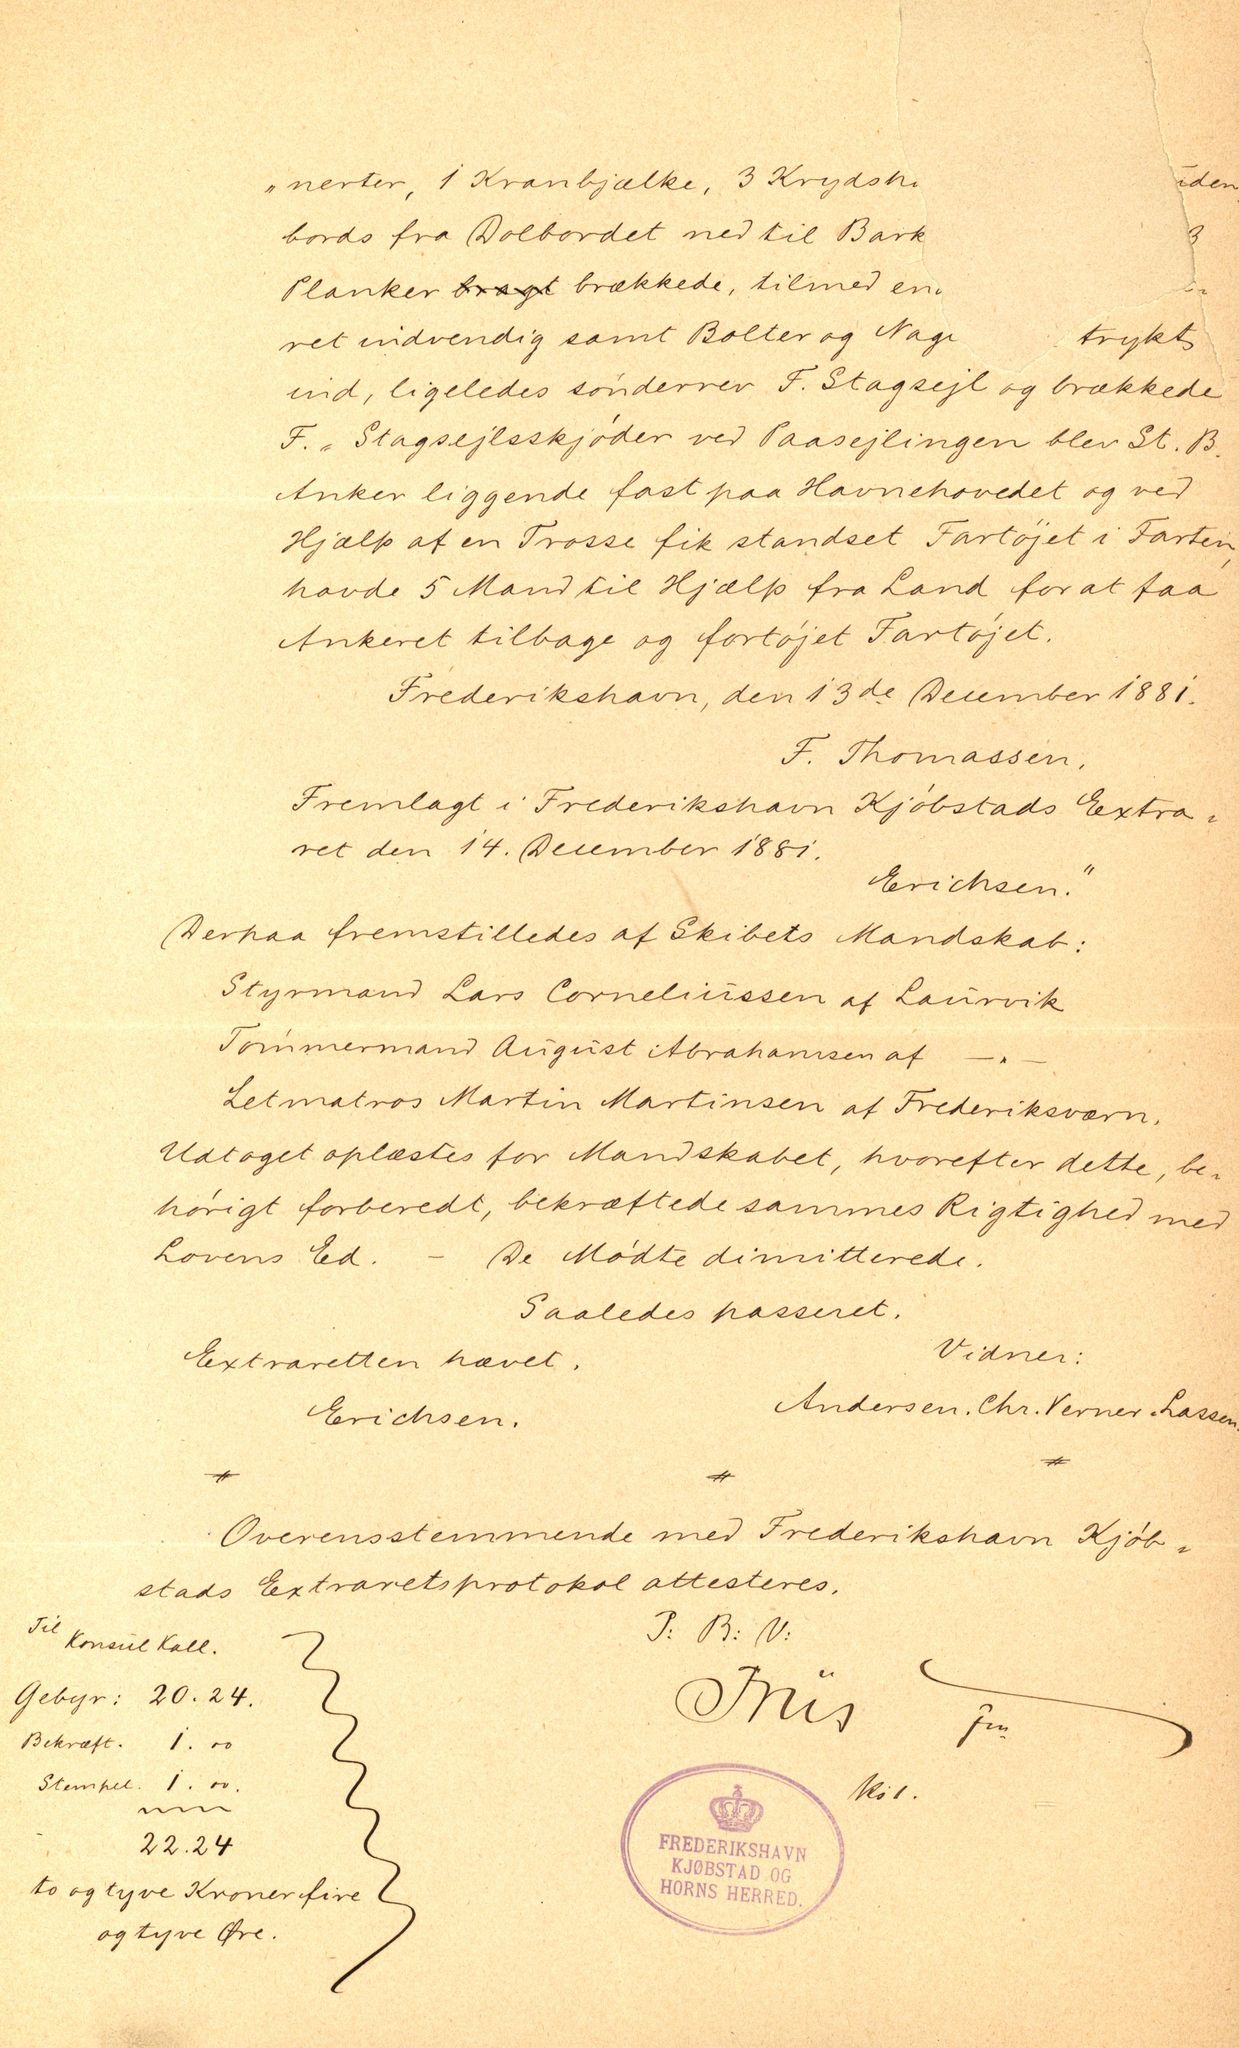 „nerter, 1 Kranbjælke, 3 Krydsh iden
bords fra Dolbordet ned til Bark 3
Planker bragt brækkede, tilmed en
ret indvendig samt Bolter og Nag trykt
ind, ligeledes sönderrev F. Stagsejl og brækkede
F. „ Stagsejlsskjöder ved Paasejlingen blev St. B.
Anker liggende fast paa Havnehovedet og ved
Hjælp af en Trosse fik standset Fartöjet i Farten,
havde 5 Mand til Hjælp fra Land for at faa
Ankeret tilbage og fortöjet Fartöjet.
Frederikshavn, den 13de December 1881.
F. Thomassen.
Fremlagt i Frederikshavn Kjöbstads Extra-
ret den 14. December 1881.
Erichsen."
Derpaa fremstilledes af Skibets Mandskab:
Styrmand Lars Corneliussen af Laurvik
Tömmermand August Abrahamsen af —„—
Letmatros Martin Martinsen af Frederiksværn.
Udtoget oplæstes for Mandskabet, hvorefter dette, be-
hörigt forberedt, bekræftede sammes Rigtighed med
Lovens Ed. – De Mödte dimitterede.
Saaledes passeret.
Extraretten hævet. Vidner:
Erichsen. Andersen. Chr. Verner Lassen.
Overensstemmende med Frederikshavn Kjöb-
stads Extraretsprotokol attesteres.
P: B: V:
Friis
fm.
Kst.
Til
Konsul Kall.
Gebyr: 20.24.
Bekræft. 1.00
Stempel. 1.00.
22.24
to og tyve Kroner fire
og tyve Øre.
FREDERIKSHAVN
KJØBSTAD OG
HORNS HERRED.